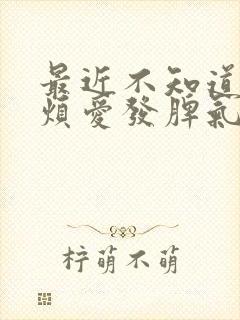 最近不知道
煩愛發脾氣
梓萌不萌